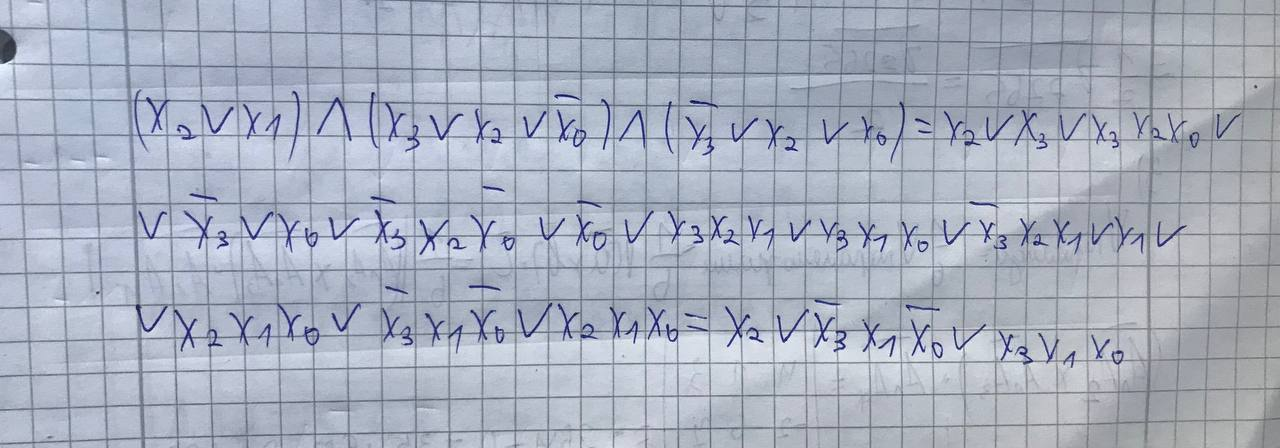 (x₂ ∨ x1) ∧ (x₃ ∨ x₂ ∨ x̅₀) ∧ (x̅₃ ∨ x₂ ∨ x₀) = x₂ ∨ x₃ ∨ x₃ x₂ x₀ ∨
∨ x̅₃ ∨ x₀ ∨ x̅₃ x₂ x̅₀ ∨ x̅₀ ∨ x₃ x₂ x₁ ∨ x₃ x₁ x₀ ∨ x̅₃ x₂ x₁ ∨ x₁ ∨
∨ x₂ x₁ x₀ ∨ x̅₃ x₁ x̅₀ ∨ x₂ x₁ x₀ = x₂ ∨ x̅₃ x₁ x̅₀ ∨ x₃ x₁ x₀